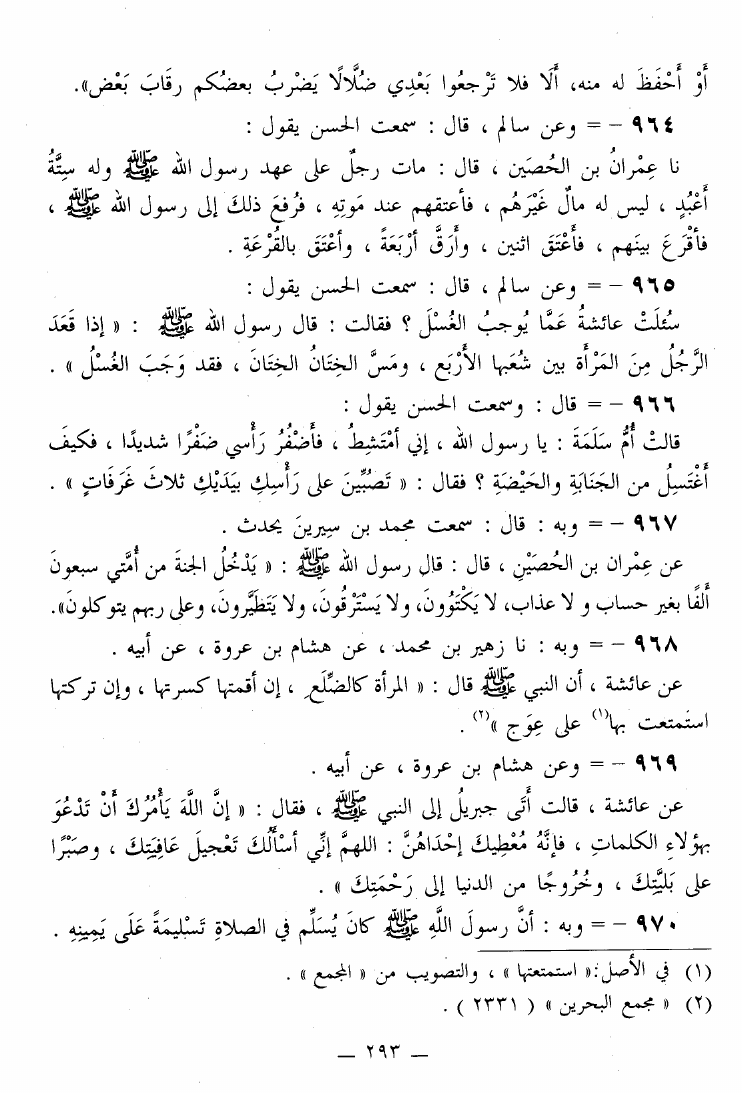 أَوْ أَحْفَظَ له منه، أَلَا فلا تَرْجعُوا بَعْدِي ضُلَّالًا يَضْرِبُ بعضُكم رقَابَ بَعْض».
٩٦٤ – = وعن سالم ، قال : سمعت الحسن يقول :
نا عِمْرانُ بن الحُصَين ، قال : مات رجلٌ على عهد رسول الله ﷺ وله سِتَّةُ
أَعْبُدٍ ، ليس له مالٌ غَيْرَهُم ، فأعتقهم عند مَوتِهِ ، فرُفعَ ذلكَ إلى رسول الله ﷺ ،
فأقْرَعَ بينَهم ، فأَعْتَقَ اثنين ، وأَرَقَّ أرْبَعَةً ، وأعْتَقَ بالقُرْعَةِ .
٩٦٥ – = وعن سالم ، قال : سمعت الحسن يقول :
سُئلَتْ عائشةُ عَمَّا يُوجبُ الغُسْلَ ؟ فقالت : قال رسول الله ﷺ : « إذا قَعَدَ
الرَّجُلُ مِنَ المَرْأَة بين شُعَبها الأَرْبَع ، ومَسَّ الخِتَانُ الخِتَانَ ، فقد وَجَبَ الغُسْلُ » .
٩٦٦ – = قال : وسمعت الحسن يقول :
قالتْ أُمُّ سَلَمَةَ : يا رسول الله ، إني أمْتَشِطُ ، فَأَضْفُرُ رَأْسي ضَفْرًا شديدًا ، فكيفَ
أَغْتَسِلُ من الجَنَابَةِ والحَيْضَةِ ؟ فقال : « تَصُبِّينَ على رَأْسِكِ بِيَدَيْكِ ثلاثَ غَرَفَاتٍ » .
٩٦٧ – = وبه : قال : سمعت محمد بن سيرينَ يحدث .
عن عِمْران بن الحُصَيْنِ ، قال : قال رسول الله ﷺ : « يَدْخُلُ الجنةَ من أُمَّتي سبعونَ
أَلفًا بغير حساب و لا عذاب، لا يَكْتَوُونَ، ولا يَسْتَرْقُونَ، ولا يَتَطَيَّرونَ، وعلى ربهم يتوكلون».
٩٦٨ – = وبه : نا زهير بن محمد ، عن هشام بن عروة ، عن أبيه .
عن عائشة ، أن النبي ﷺ قال : « المرأة كالضِّلَعِ ، إن أقمتها كسرتها ، وإن تركتها
استَمتعت بها(١) على عِوَج »(٢) .
٩٦٩ – = وعن هشام بن عروة ، عن أبيه .
عن عائشة ، قالت أَتَى جبريلُ إلى النبي ﷺ ، فقال : « إنَّ اللَّهَ يَأْمُرُكَ أَنْ تَدْعُوَ
بهؤلاءِ الكلماتِ ، فإنَّهُ مُعْطِيكَ إحْدَاهُنَّ : اللهمَّ إنِّي أسْأَلُكَ تَعْجيلَ عَافِيَتِكَ ، وصَبْرًا
على بَليَّتِكَ ، وخُرُوجًا من الدنيا إلى رَحْمَتِكَ » .
٩٧٠ – = وبه : أنَّ رسولَ اللَّهِ ﷺ كانَ يُسَلِّم في الصلاةِ تَسْليمَةً عَلَى يَمِينِهِ .
(١) في الأصل:« استمتعتها » ، والتصويب من « المجمع » .
(٢) « مجمع البحرين » ( ٢٣٣١ ) .
— ٢٩٣ —